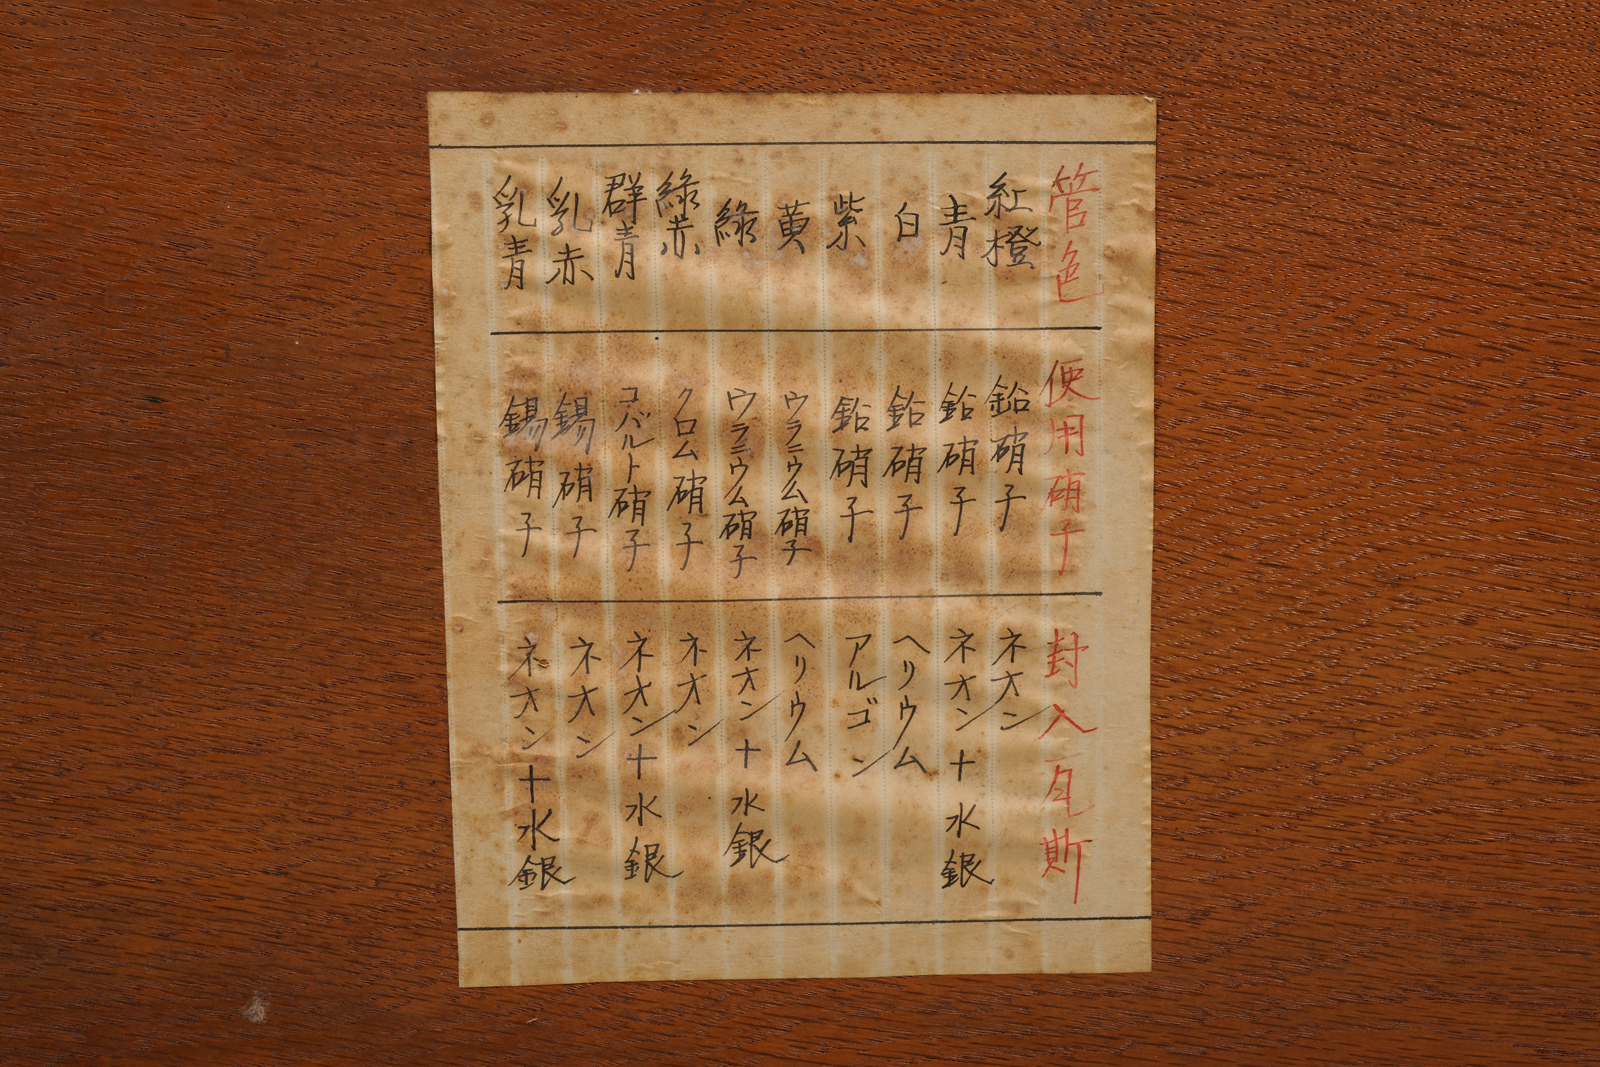 管色 使用硝子 封入瓦斯
紅橙 鉛硝子 ネオン
青 鉛硝子 ネオン十水銀
白 鉛硝子 ヘリウム
紫 鉛硝子 アルゴン
黄 ウラニウム硝子 ヘリウム
綠 ウラニウム硝子 ネオン十水銀
綠赤 クロム硝子 ネオン
群青 コバルト硝子 ネオン十水銀
乳赤 錫硝子 ネオン
乳青 錫硝子 ネオン十水銀